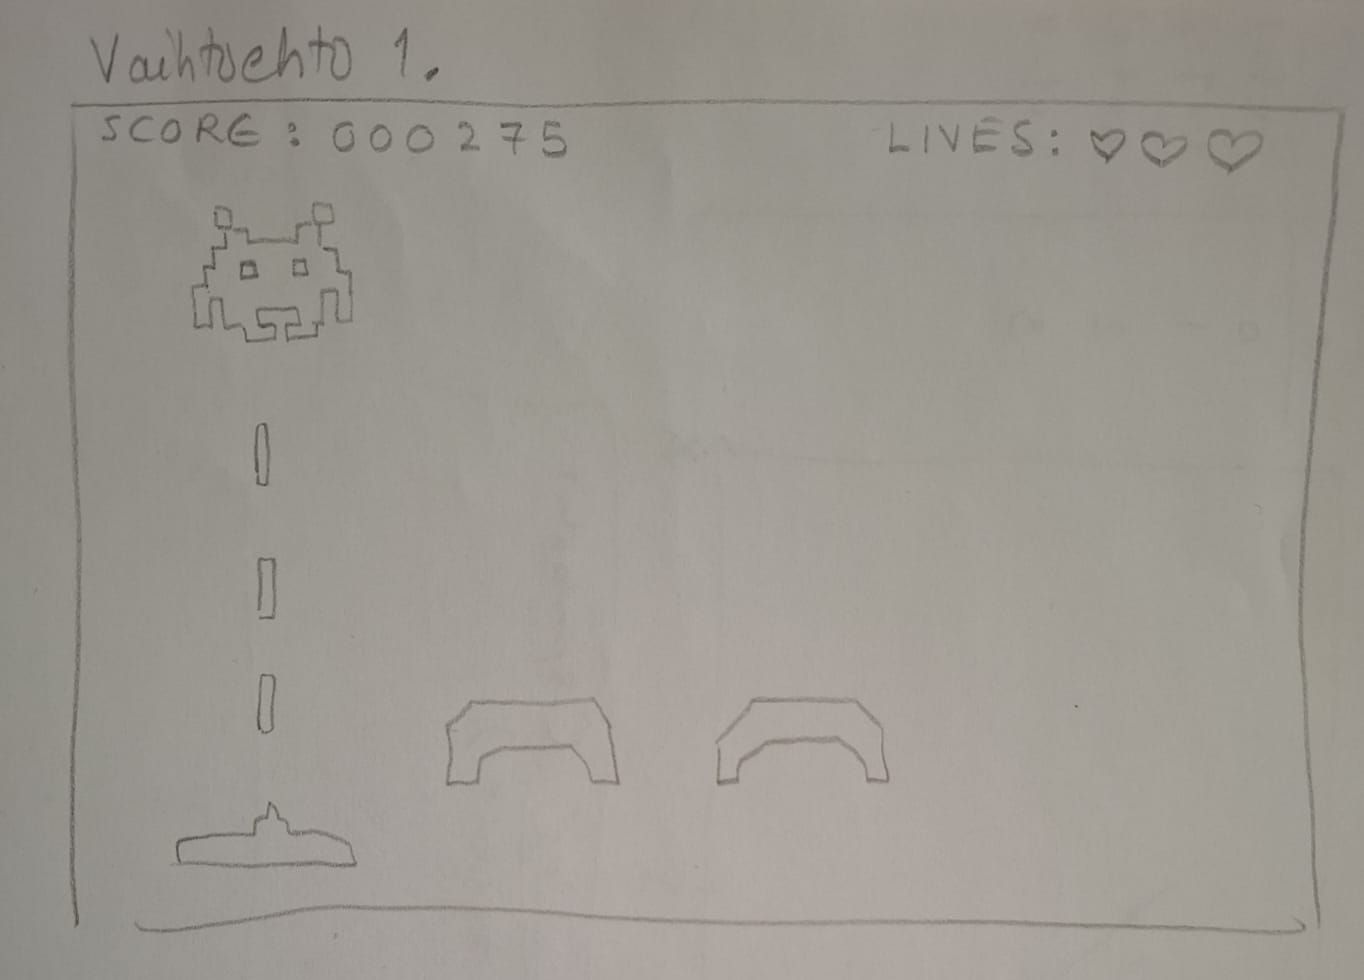 Vaihtoehto 1.
SCORE: 000275 LIVES: ♡ ♡ ♡